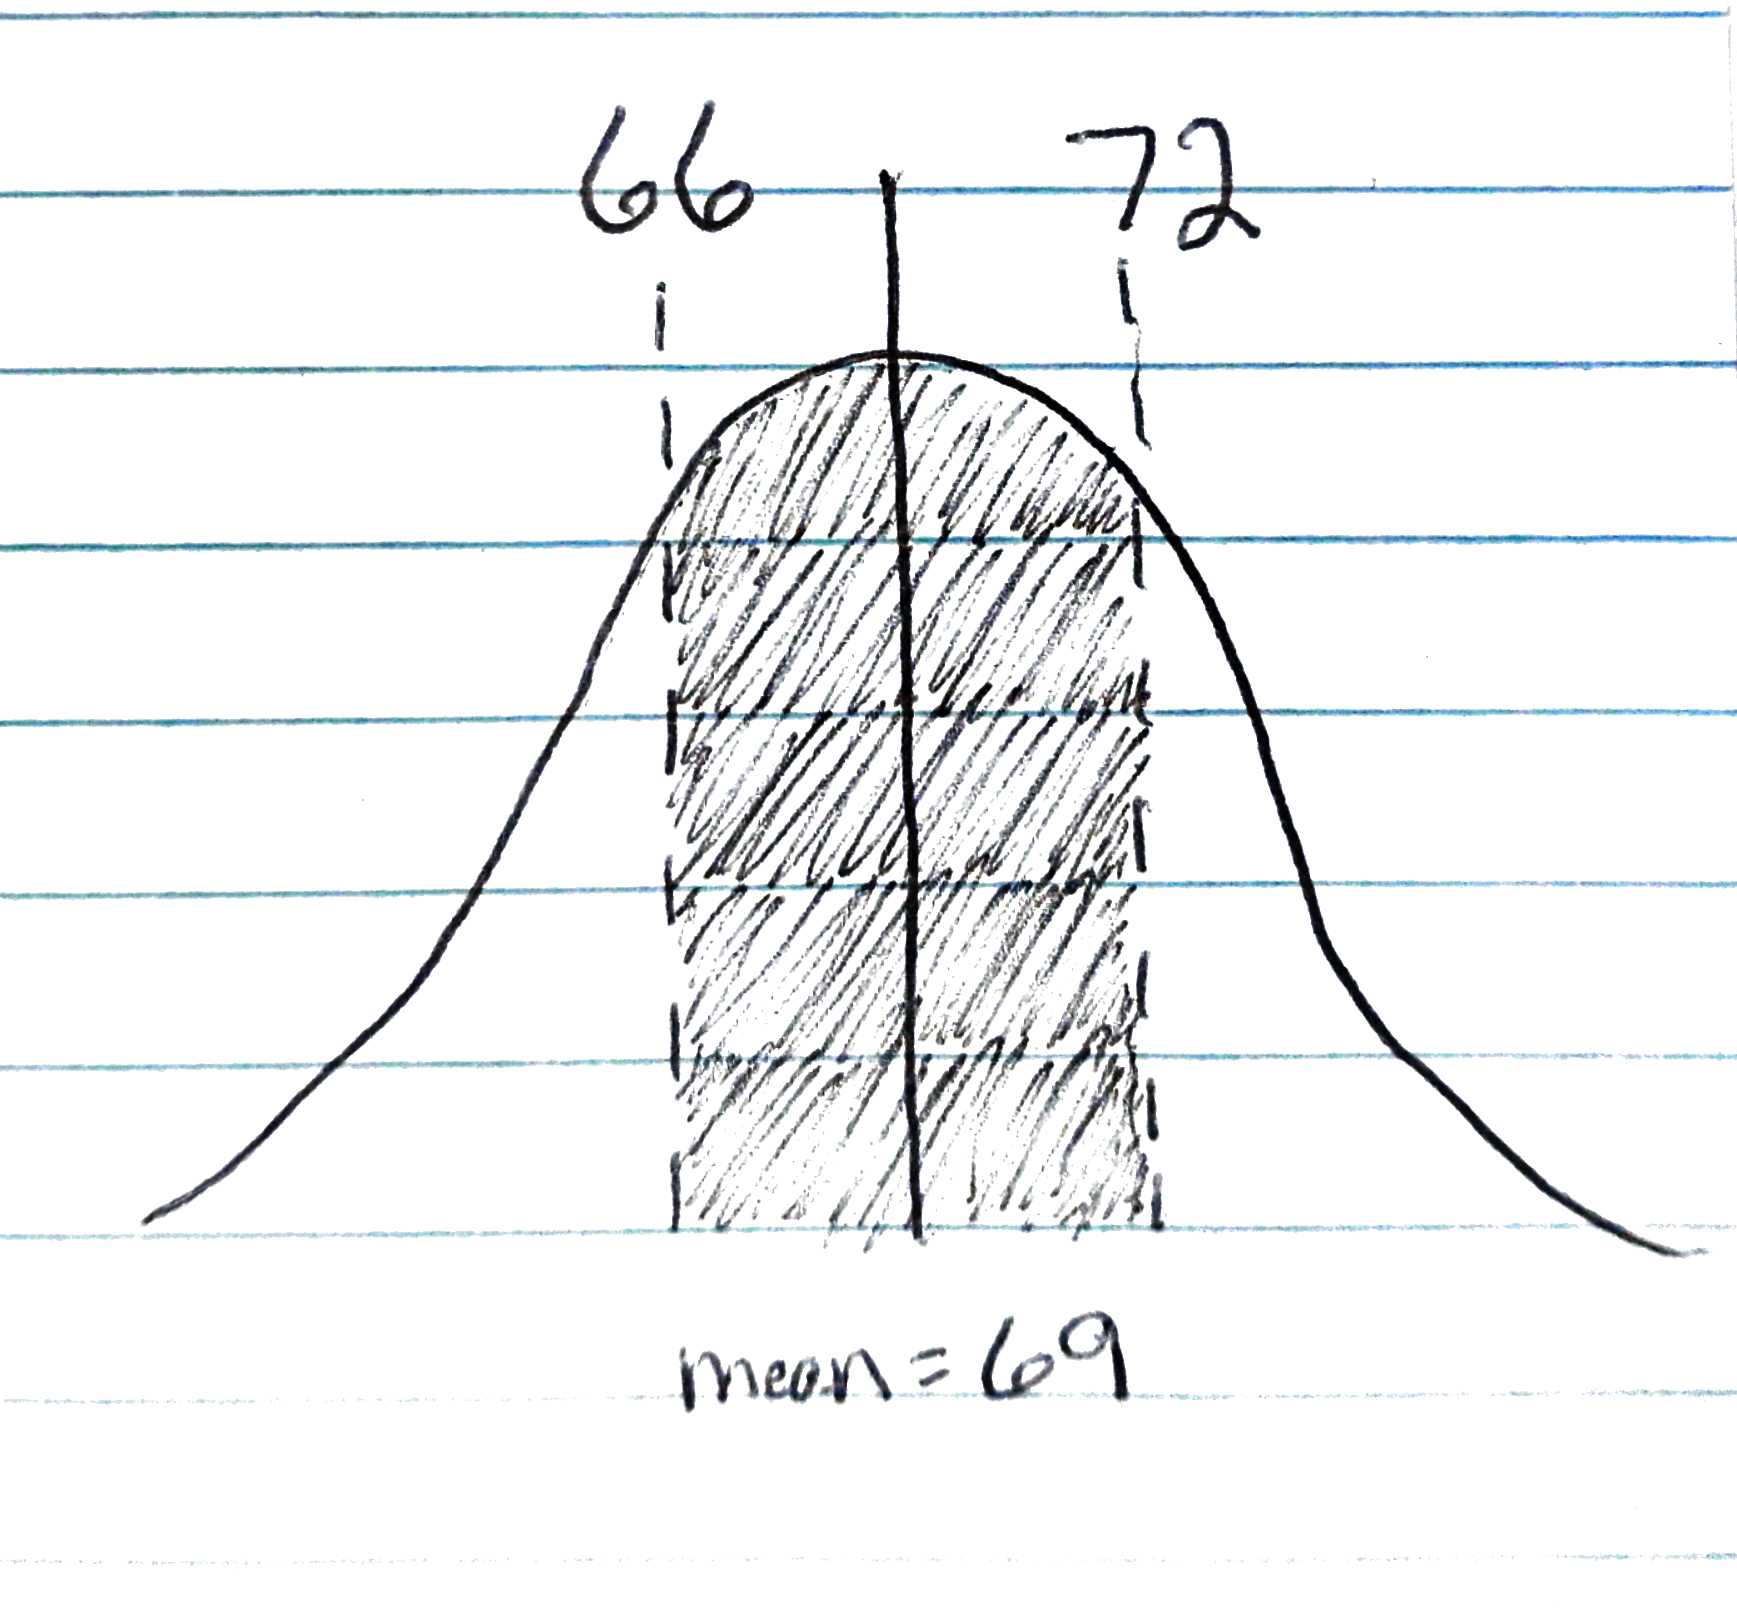 66 72
mean = 69